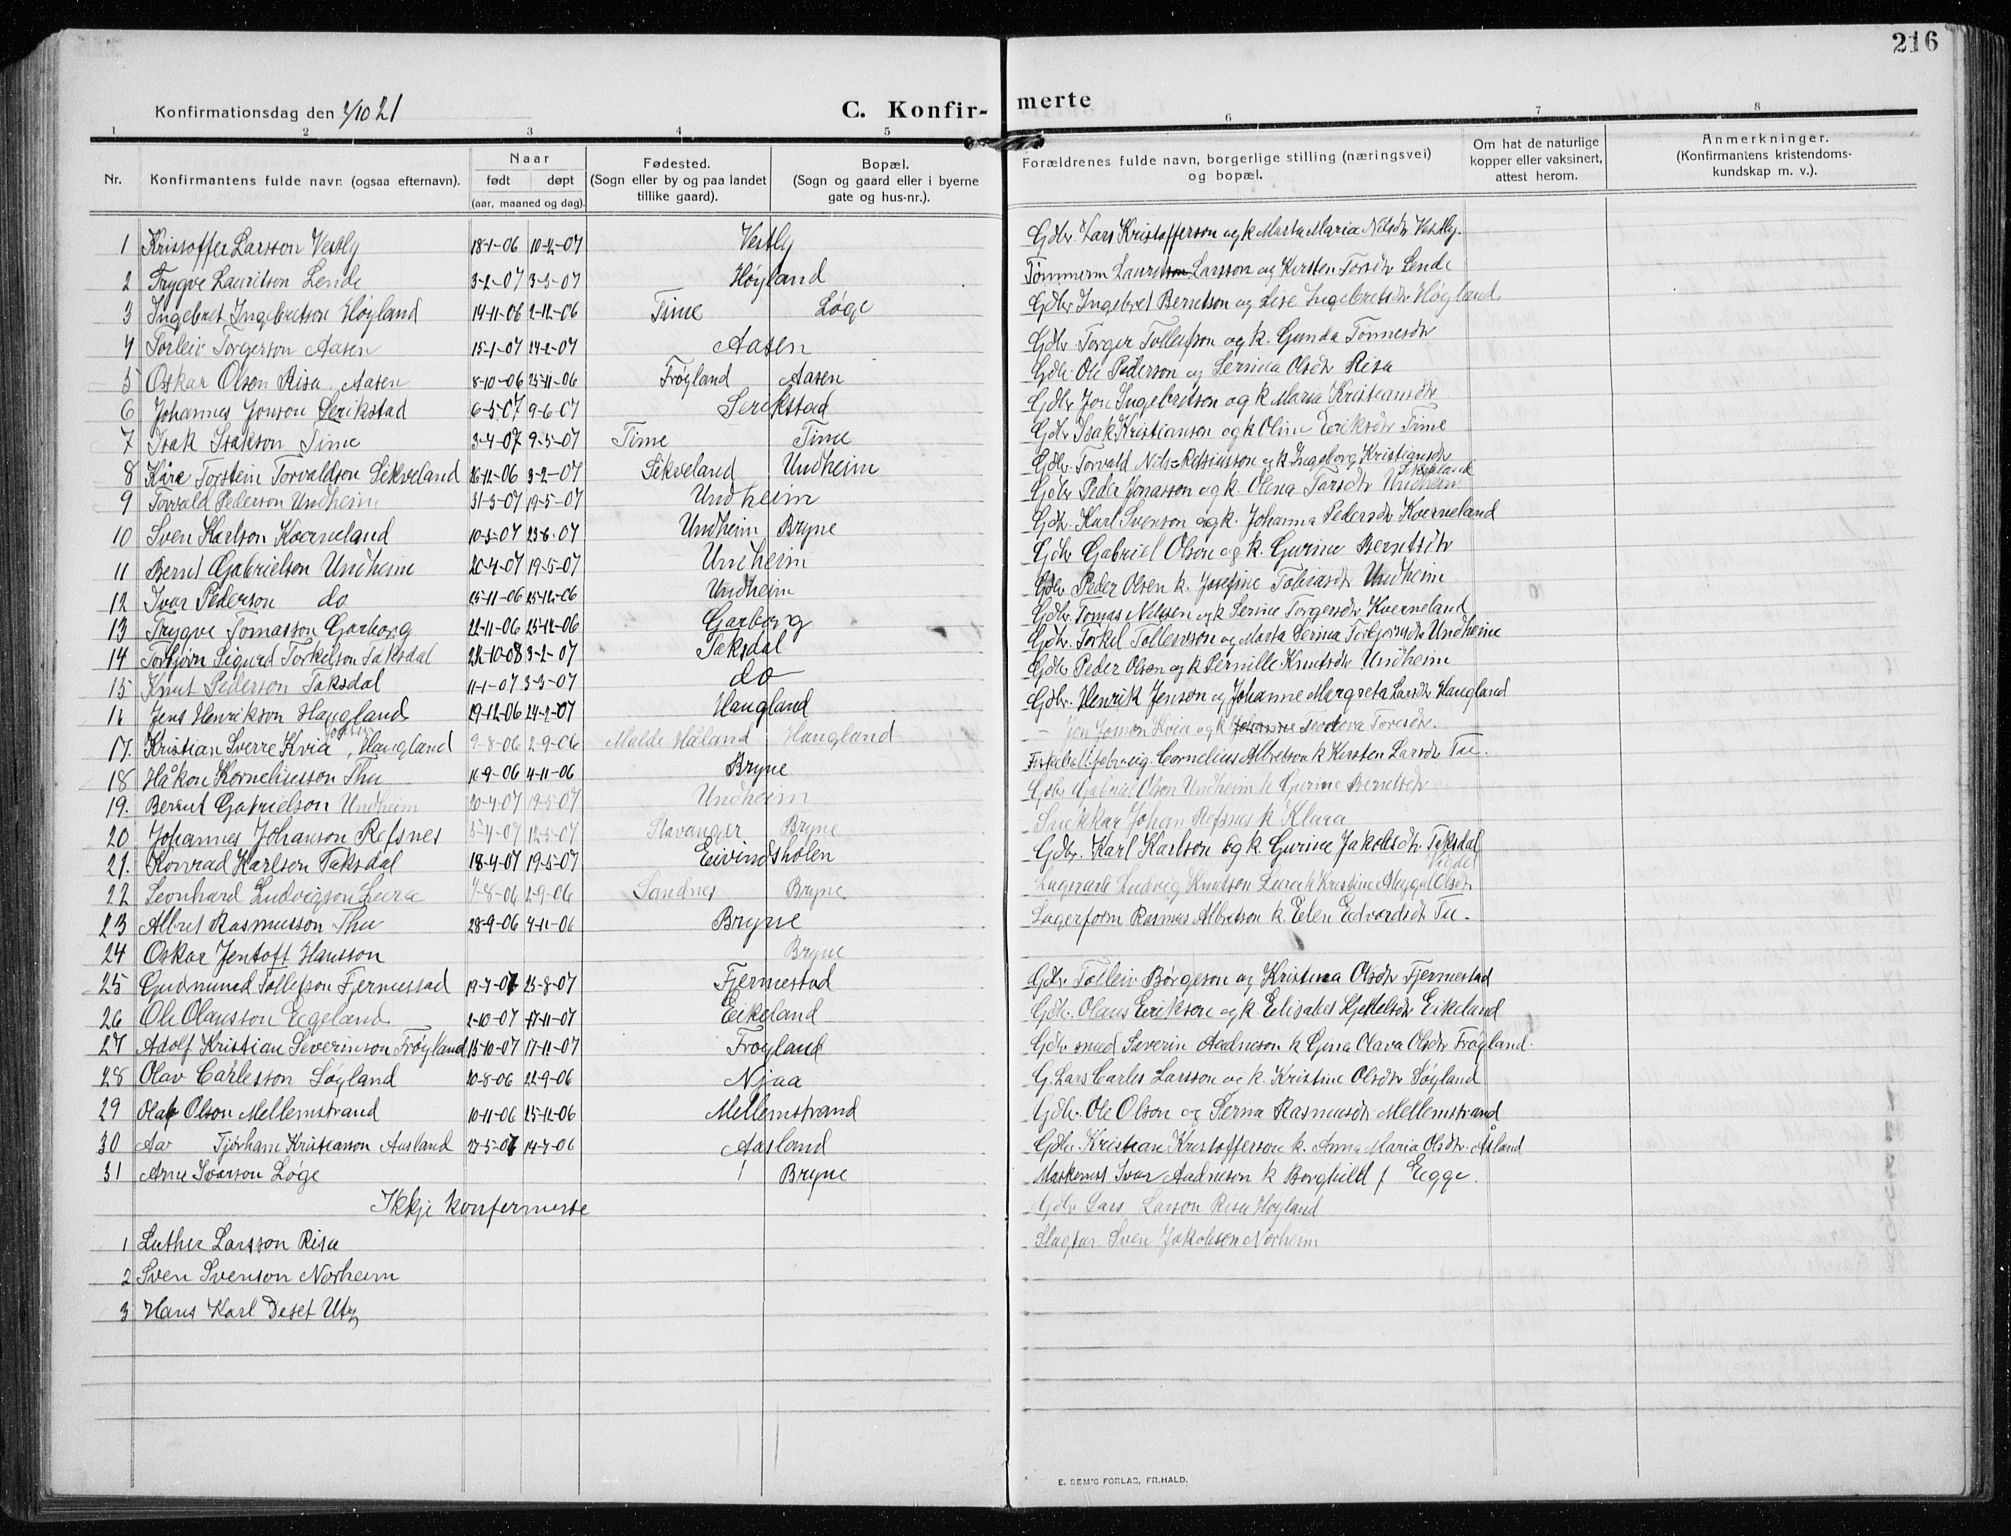 216
Konfirmationsdag den 2/10 21
C. Konfir-merte
1 2 3 4 5 6 7 8
Nr. Konfirmantens fulde navn (ogsaa efternavn). Naar født døpt (aar, maaned og dag). Fødested. (Sogn eller by og paa landet tillike gaard). Bopæl. (Sogn og gaard eller i byerne gate og hus-nr.). Forældrenes fulde navn, borgerlige stilling (næringsvei) og bopæl. Om hat de naturlige kopper eller vaksinert, attest herom. Anmerkninger. (Konfirmantens kristendoms-kundskap m. v.).
1 Kristoffer Larsson Vestly 18-1-06 10-2-07 Vestly Gdbr. Lars Kristofferson og k Marta Maria Nilsdtr Vestly.
2 Trygve Lauritson Lende 3-2-07 3-3-07 Høyland Tømmerm Lauritson Larsson og Kirsten Torsdtr Lende
3 Ingebret Ingebretson Høyland 14-11-06 2-12-06 Time Løge Gdbr Ingebret Berntson og Lise Ingebretsdtr Høyland.
4 Torleiv Torgerson Aasen 15-1-07 24-2-07 Aasen Gdbr. Torger Tollefson og k. Gunda Tønnesdtr
5 Oskar Olson Risa, Aasen 8-10-06 25-11-06 Frøyland Aasen Gdbr Ole Pederson og Serina Olsdtr Risa
6 Johannes Jonson Serikstad 6-5-07 9-6-07 Serikstad Gdbr Jon Ingebritson og k Maria Kristiansdtr
7 Isak Isakson Time 3-4-07 9-5-07 Time Time Gdbr Isak Kristianson og k Oline Eriksdtr Time
8 Kåre Torstein Torvaldson Sikveland 26-12-06 3-2-07 Sikveland Undheim Gdbr. Torvald Nils Rasmusson og k. Ingeborg Kristiansdtr Sikveland
9 Torvald Pederson Undheim 31-3-07 19-5-07 Undheim Gdbr Peder Jonasson og k. Olena Larsdtr Undheim
10 Sven Karlson Kverneland 10-5-07 23-6-07 Undheim Bryne Gdbr. Karl Svenson og k. Johanna Pedersdtr Kverneland
11 Bernt Gabrielson Undheim 20-4-07 19-5-07 Undheim Gdbr Gabriel Olson og k. Gurine Berntsdtr
12 Ivar Pederson do 25-11-06 25-12-06 Undheim Gdbr Peder Olsen k. Josefine Tobiasdtr Undheim
13 Trygve Tomasson Garborg 22-11-06 25-12-06 Garborg Gdbr. Tomas Nilsen og k Serine Torgersdtr Kverneland
14 Torbjørn Sigurd Torkelson Taksdal 24-10-08 3-2-07 Taksdal Gdbr. Torkel Tollevsson og Marta Serina Torbjørnsdtr Undheim
15 Knut Pederson Taksdal 11-1-07 3-3-07 do Gdbr Peder Olson og k Pernille Knutsdtr Undheim
16 Jens Henrikson Haugland 29-12-06 24-2-07 Haugland Gdbr. Henrik Jenson og Johanne Margreta Larsdtr Haugland
17. Kristian Sverre Kvia, Haugland 9-8-06 2-9-06 Malde Håland Haugland - Jon Jonson Kvia og k Johanne Teodora Toresdtr.
18 Håkon Korneliusson Thu 11-9-06 4-11-06 Bryne Cornelius Albretson k Kirsten Larsdtr Tu.
19. Bernt Gabrielson Undheim 20-4-07 19-5-07 Undheim Gdbr Gabriel Olson Undheim k Gurine Berntsdtr
20 Johannes Johanson Refsnes 5-4-07 12-5-07 Stavanger Bryne Snekkar Johan Refsnes k Klara
21. Konrad Karlson Taksdal 18-4-07 19-5-07 Eivindsholen Gdbr. Karl Karlson og k. Gurine Jakobsdtr. Taksdal
22 Leonhard Ludvigson Leira 7-8-06 2-9-06 Sandnes Bryne Lagerarb Ludvig Knutson Leira k Kristine Olsdtr
23 Albret Rasmusson Thu 28-9-06 4-11-06 Bryne Lagerform Rasmus Albretson k Elen Edvardsdtr Tu.
24 Oskar Jentoft Hansson Bryne
25 Gudmund Tollefson Fjermestad 19-7-07 25-8-07 Fjermestad Gdbr Tolleiv Børgeson og Kristina Olsdtr Fjermestad
26 Ole Olausson Eigeland 2-10-07 17-11-07 Eikeland Gdbr. Olaus Erikson og k Elisabet Kjetelsdtr Eikeland
27 Adolf Kristian Severinson Frøyland 15-10-07 17-11-07 Frøyland Gdbr smed Severin Aadneson k Gina Olava Olsdtr Frøyland.
28 Olav Carlesson Søyland 20-8-06 22-9-06 Njaa G. Lars Carles Larsson og k. Kristine Olsdtr Søyland
29 Olaf Olson Mellemstrand 10-11-06 25-12-06 Mellemstrand Gdbr. Ole Olson og Serina Rasmusdtr Mellemstrand
30 Aa Tjørham Kristianson Aasland 27-5-06 14-7-06 Aasland Gdbr. Kristian Kristofferson k. Anna Maria Olsdtr. Åsland
31 Arne Ivarson Løge Bryne Maskemest Ivar Aadneson k Borghild f Egge.
Ikkje konfermerte Gdbr Lars Larson Risa Høyland
1 Luther Larsson Risa Slagtar Sven Jakobsen Norheim
2 Sven Svenson Norheim
3 Hans Karl
E. SEM'S FORLAG, FR.HALD.